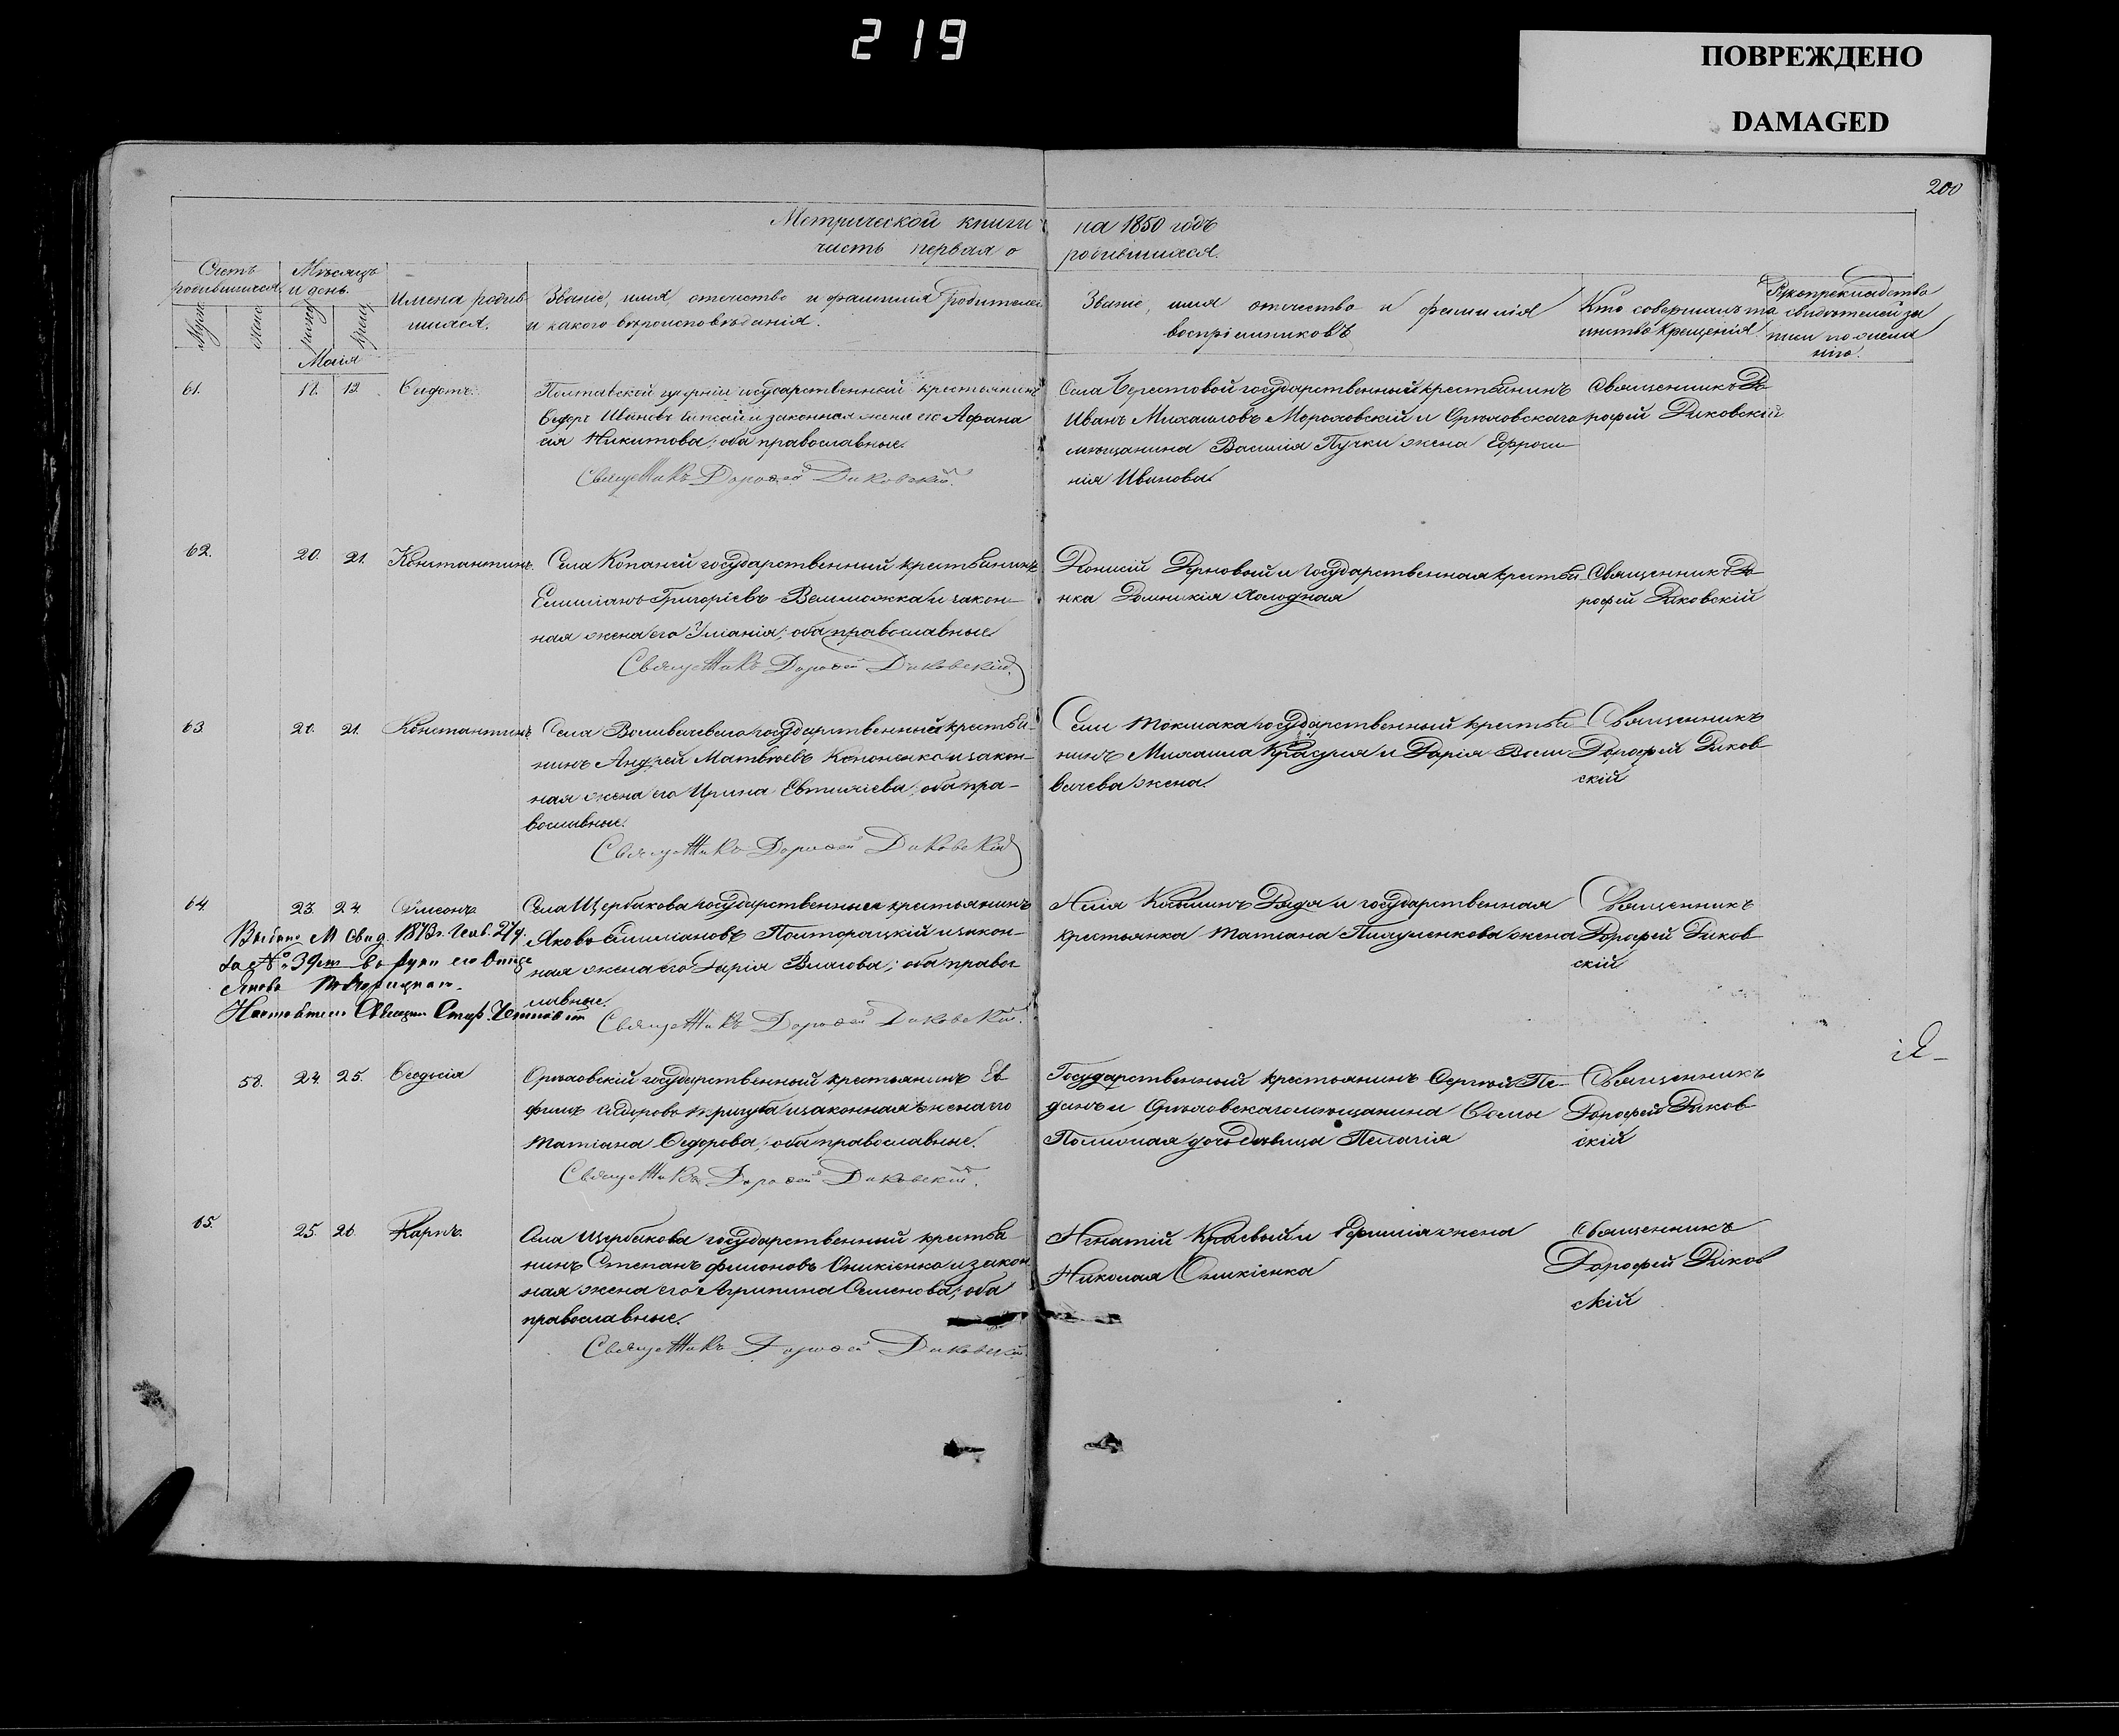 219
ПОВРЕЖДЕНО
DAMAGED
200
Метрической книги на 1850 годъ
часть первая о родившихся.
Счетъ родившихся
Мѣсяцъ и день.
Имена родившихся.
Званіе, имя отечество и фамилія родителей
и какого вѣроисповѣданія.
Званіе, имя отечество и фамилія
воспріемниковъ
Кто совершалъ та
инство крещенія
Рукоприкладство
свидѣтелей за
писи по жела
нію.
Маія
61. 12.
Полтавской губерніи государственный крестьянинъ
Ивановъ и законная жена его Афана
сія Никитова; оба православные.
Священникъ Дорофей Диковскій.
Села Берестовой государственный крестьянинъ
Иванъ Михаиловъ Мороховскій и Орѣховскаго
мѣщанина Василія Пучки жена Ефроси
нія Иванова.
Священникъ До
рофей Диковскій
62. 20. 21. Константинъ.
Села Копаней государственный крестьянинъ
Емиліанъ Григоріевъ Вельможка и закон
ная жена его Уліанія; оба православные.
Священникъ Дорофей Диковскій.
Діонисій Дерновый и государственная крестья
нка Домникія Холодная
Священникъ До
рофей Диковскій
63. 20. 21. Константинъ.
Села государственный крестья
нинъ Андрей Матвѣевъ Кононенко и закон
ная жена его Ирина Евтихіева; оба пра
вославные.
Священникъ Дорофей Диковскій
Села Токмака государственный крестья
нинъ Михаила и Дарія
жена.
Священникъ
Дорофей Диков
скій
64. 23. 24. Симеонъ
Села Щербакова государственный крестьянинъ
Яковъ Емиліановъ Полторацкій и закон
ная жена его Дарія Власова; оба правос
лавные.
Священникъ Дорофей Диковскій.
Выдано М свид. 1873 г. 27 д.
за № 39 въ руки его
Якова
Илія и государственная
крестьянка Татіана жена
Священникъ
Дорофей Диков
скій
58. 24. 25. Ѳеодосія
Орѣховскій государственный крестьянинъ Ев
фимъ Сидоровъ и законная жена его
Татіана Ѳедорова; оба православные.
Священникъ Дорофей Диковскій.
Государственный крестьянинъ Сергѣй Пе
данъ и Орѣховскаго мѣщанина Ѳомы
дочь дѣвица Пелагія
Священникъ
Дорофей Диков
скій
65. 25. 26. Карпъ.
Села Щербакова государственный крестья
нинъ Степанъ Филоновъ Оникіенко и закон
ная жена его Агрипина Семенова; оба
православные.
Священникъ Дорофей Диковскій.
Игнатій и жена
Николая Оникіенка
Священникъ
Дорофей Диков
скій